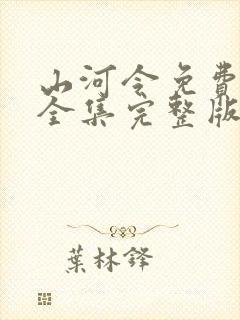 山河令免費
全集完整版
葉林鋒